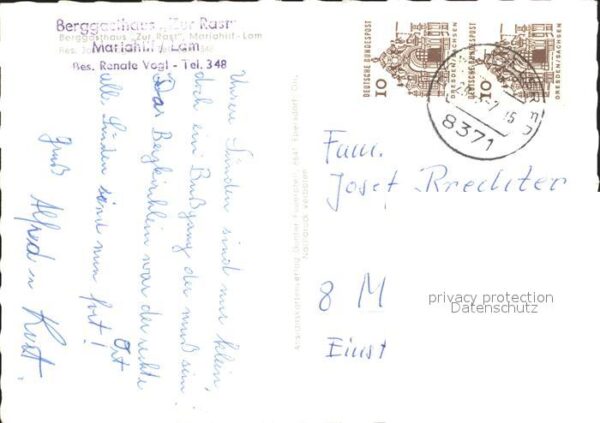 Berggasthaus "Zur Rast"
Mariahilf-Lam
Bes. Renate Vogl - Tel. 348
Berggasthaus "Zur Rast", Mariahilf-Lam
Unsere Sünden sind nur klein,
doch ein Bußgang der muß sein!
Das Bergkirchlein war der rechte
Ort
all. Sünden sind nun fort!
Gruß Alfred u Kurt.
Nachdruck verboten
DEUTSCHE BUNDESPOST
10
DRESDEN/SACHSEN
DEUTSCHE BUNDESPOST
10
DRESDEN/SACHSEN
8371
Fam.
Josef Brechter
8 M
privacy protection
Datenschutz